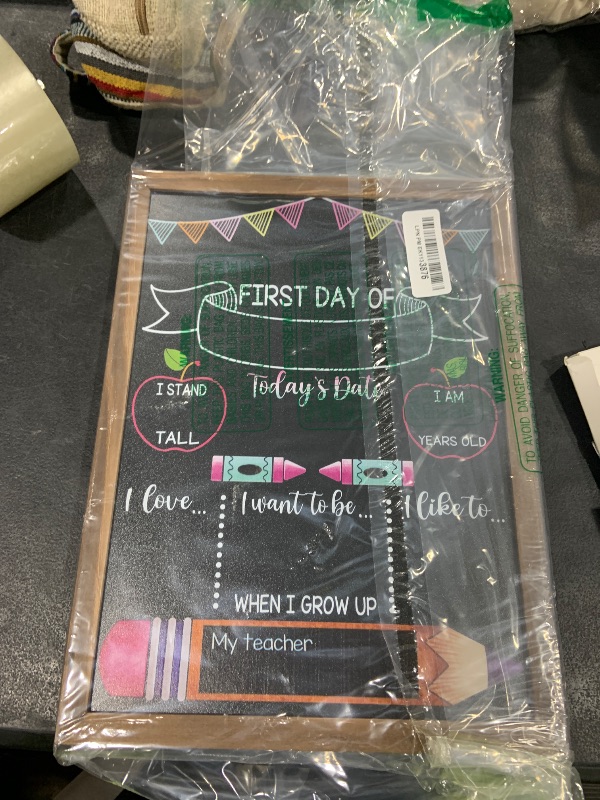 FIRST DAY OF
Today's Date
I STAND
TALL
I AM
YEARS OLD
I love...
I want to be...
I like to...
WHEN I GROW UP
My teacher
WARNING:
TO AVOID DANGER OF SUFFOCATION,